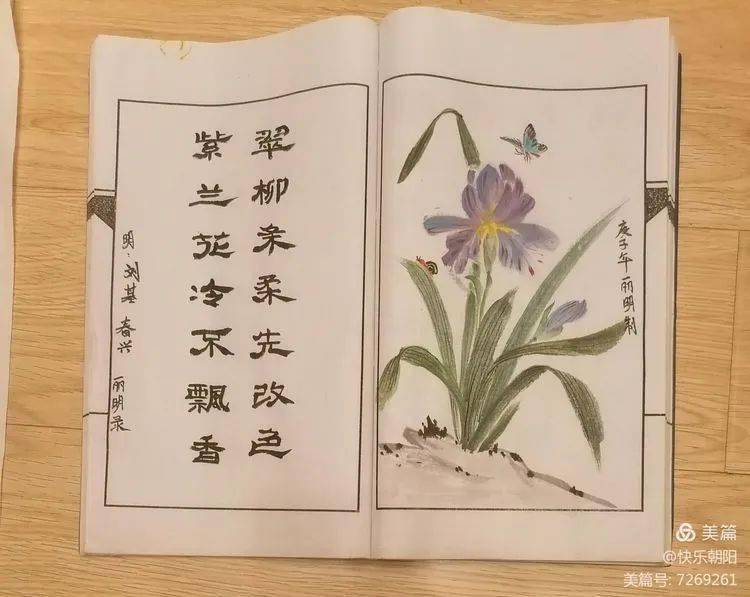 翠柳条柔先改色
紫兰花冷不飘香
明：刘基 春兴 丽明录
庚子年丽明制
美篇
@快乐朝阳
美篇号: 7269261